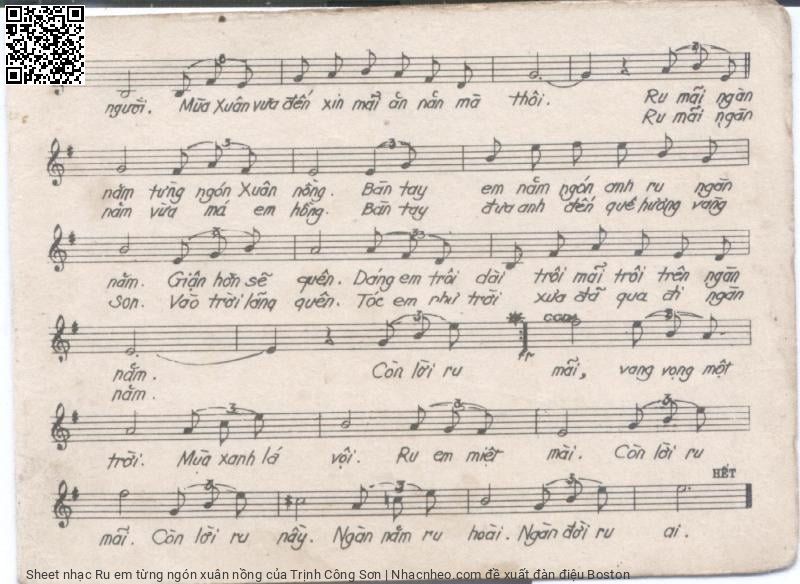 người. Mùa Xuân vừa đến xin mãi ăn năn mà thôi. Ru mãi ngàn
Ru mãi ngàn
năm từng ngón Xuân nồng. Bàn tay em năm ngón anh ru ngàn
năm vừa má em hồng. Bàn tay đưa anh đến quê hương vang
năm. Giận hờn sẽ quên. Dáng em trôi dài trôi mãi trôi trên ngàn
Son. Vào trời lãng quên. Tóc em như trời xưa đã qua đi ngàn
CODA
năm. Còn lời ru mãi, vang vọng một
năm.
trời. Mùa xanh lá vội. Ru em miệt mài. Còn lời ru
HẾT
mãi. Còn lời ru nầy. Ngàn năm ru hoài. Ngàn đời ru ai.
Sheet nhạc Ru em từng ngón xuân nồng của Trịnh Công Sơn | Nhacnheo.com đề xuất đàn điệu Boston